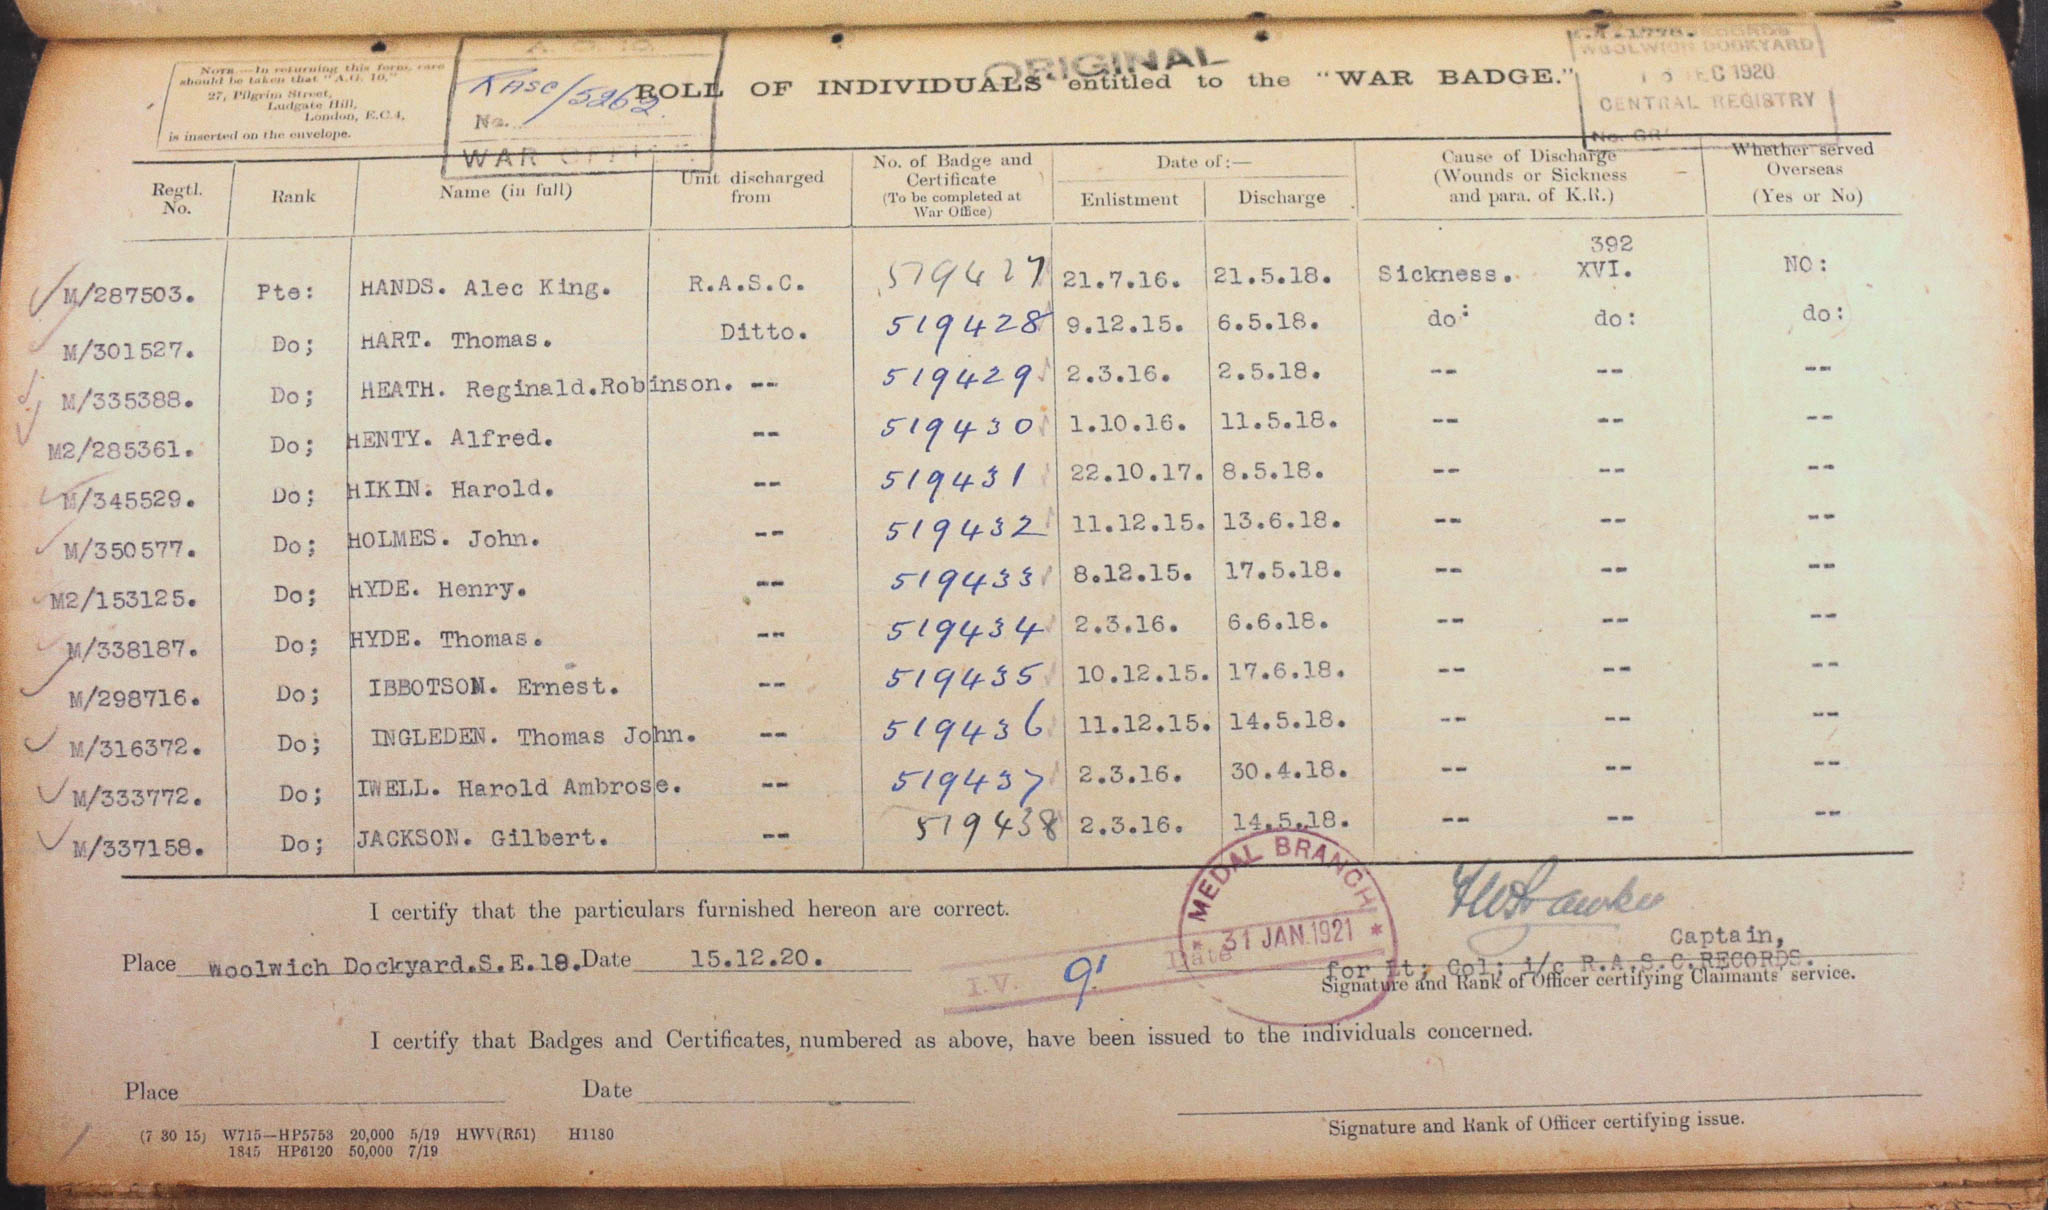 NOTE.—In returning this form, care
should be taken that "A.G. 10,"
27, Pilgrim Street,
Ludgate Hill,
London, E.C.4,
is inserted on the envelope.
A. G. 10.
RASC/5262
No.
WAR OFFICE
ORIGINAL
ROLL OF INDIVIDUALS entitled to the "WAR BADGE."
RECORDS
WOOLWICH DOCKYARD
DEC 1920
CENTRAL REGISTRY
No. GR/
Regtl. No. Rank Name (in full) Unit discharged from No. of Badge and Certificate (To be completed at War Office) Date of:— Enlistment Discharge Cause of Discharge (Wounds or Sickness and para. of K.R.) Whether served Overseas (Yes or No)
392
M/287503. Pte: HANDS. Alec King. R.A.S.C. 519427 21.7.16. 21.5.18. Sickness. XVI. NO:
M/301527. Do; HART. Thomas. Ditto. 519428 9.12.15. 6.5.18. do: do: do:
M/335388. Do; HEATH. Reginald.Robinson. -- 519429 2.3.16. 2.5.18. -- -- --
M2/285361. Do; HENTY. Alfred. -- 519430 1.10.16. 11.5.18. -- -- --
M/345529. Do; HIKIN. Harold. -- 519431 22.10.17. 8.5.18. -- -- --
M/350577. Do; HOLMES. John. -- 519432 11.12.15. 13.6.18. -- -- --
M2/153125. Do; HYDE. Henry. -- 519433 8.12.15. 17.5.18. -- -- --
M/338187. Do; HYDE. Thomas. -- 519434 2.3.16. 6.6.18. -- -- --
M/298716. Do; IBBOTSON. Ernest. -- 519435 10.12.15. 17.6.18. -- -- --
M/316372. Do; INGLEDEN. Thomas John. -- 519436 11.12.15. 14.5.18. -- -- --
M/333772. Do; IWELL. Harold Ambrose. -- 519437 2.3.16. 30.4.18. -- -- --
M/337158. Do; JACKSON. Gilbert. -- 519438 2.3.16. 14.5.18. -- -- --
I certify that the particulars furnished hereon are correct.
MEDAL BRANCH
* 31 JAN.1921 *
Captain,
Place Woolwich Dockyard.S.E.18. Date 15.12.20. for Lt; Col; i/c R.A.S.C.RECORDS.
I.V. 9! Date
Signature and Rank of Officer certifying Claimants' service.
I certify that Badges and Certificates, numbered as above, have been issued to the individuals concerned.
Place Date
Signature and Rank of Officer certifying issue.
(7 30 15) W715—HP5753 20,000 5/19 HWV(R51) H1180
1845 HP6120 50,000 7/19